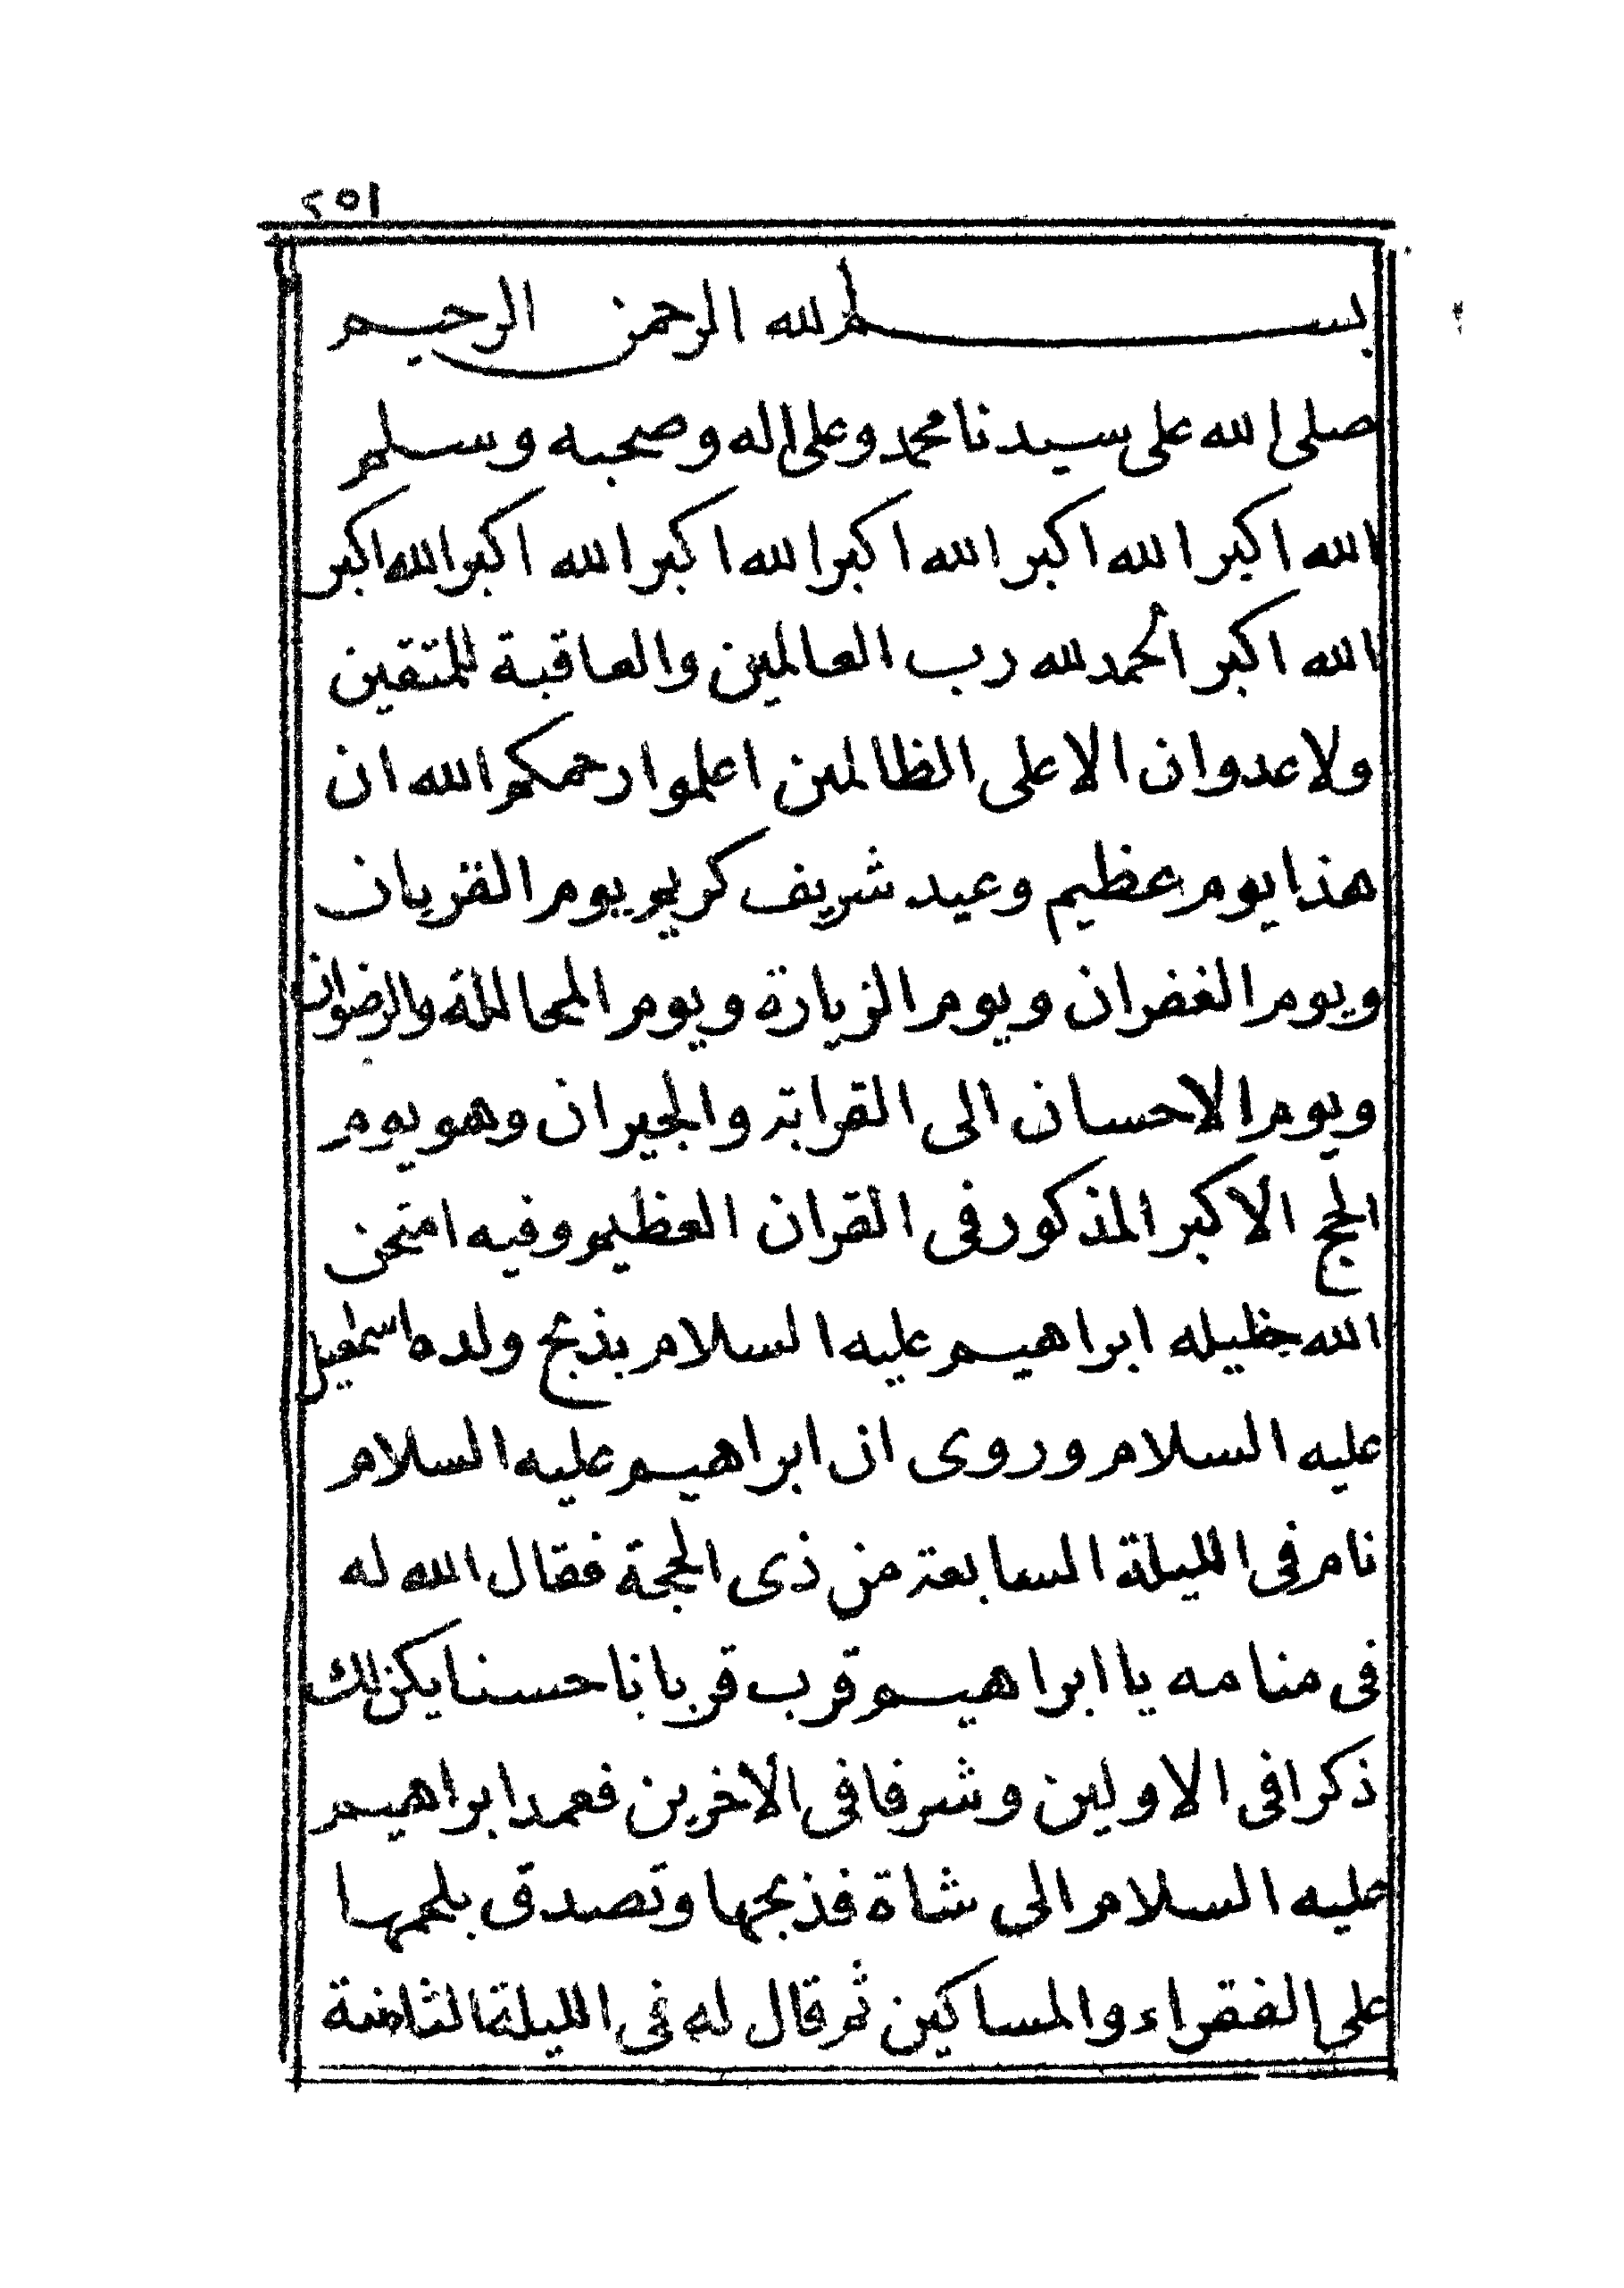 ١٥٢
بسم الله الرحمن الرحيم
صلى الله على سيدنا محمد وعلى اله وصحبه وسلم
الله اكبر الله اكبر الله اكبر الله اكبر الله اكبر الله اكبر
الله اكبر الحمد لله رب العالمين والعاقبة للمتقين
ولا عدوان الا على الظالمين اعلموا رحمكم الله ان
هذا يوم عظيم وعيد شريف كريم يوم القربان
ويوم الغفران ويوم الزيارة ويوم والرضوان
ويوم الاحسان الى القرابة والجيران وهو يوم
الحج الاكبر المذكور فى القران العظيم وفيه امتحن
الله خليله ابراهيم عليه السلام بذبح ولده اسمعيل
عليه السلام وروى ان ابراهيم عليه السلام
نام فى الليلة السابعة من ذى الحجة فقال الله له
فى منامه يا ابراهيم قرب قربانا حسنا يكن لك
ذكرا فى الاولين وشرفا فى الاخرين فعمد ابراهيم
عليه السلام الى شاة فذبحها وتصدق بلحمها
على الفقراء والمساكين ثم قال له فى الليلة الثامنة